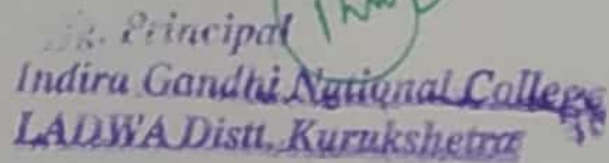 Principal
Indira Gandhi National College
LADWA Distt. Kurukshetra